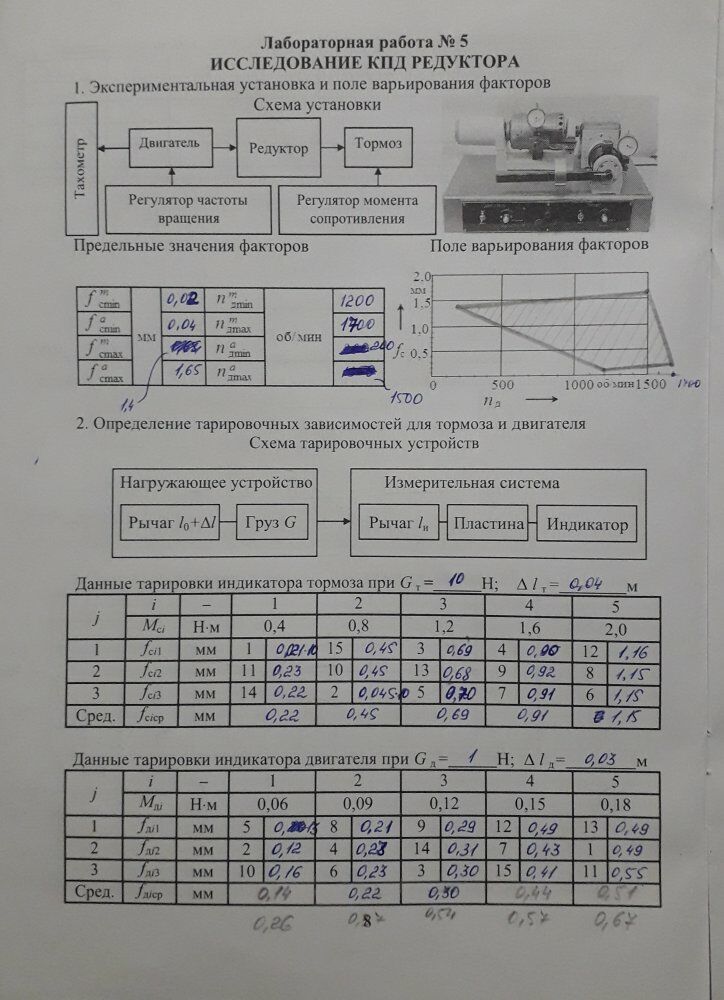 Лабораторная работа № 5
ИССЛЕДОВАНИЕ КПД РЕДУКТОРА
1. Экспериментальная установка и поле варьирования факторов
Схема установки
Тахометр
Двигатель
Редуктор
Тормоз
Регулятор частоты вращения
Регулятор момента сопротивления
Предельные значения факторов
Поле варьирования факторов
f^т_cmin мм 0,02 n^т_дmin об/мин 1200
f^а_cmin 0,04 n^т_дmax 1700
f^т_cmax 1,4 n^а_дmin 200
f^а_cmax 1,65 n^а_дmax 1500
2,0
мм
1,5
1,0
f_c
0,5
0 500 1000 об/мин 1500 1700
n_д
2. Определение тарировочных зависимостей для тормоза и двигателя
Схема тарировочных устройств
Нагружающее устройство
Рычаг l0+Δl
Груз G
Измерительная система
Рычаг lи
Пластина
Индикатор
Данные тарировки индикатора тормоза при Gт= 10 Н; Δlт= 0,04 м
j i – 1 2 3 4 5
Mci Н·м 0,4 0,8 1,2 1,6 2,0
1 fci1 мм 1 15 0,45 3 0,69 4 0,90 12 1,16
2 fci2 мм 11 0,23 10 0,45 13 0,68 9 0,92 8 1,15
3 fci3 мм 14 0,22 2 5 0,70 7 0,91 6 1,15
Сред. fciср мм 0,22 0,45 0,69 0,91 1,15
Данные тарировки индикатора двигателя при Gд= 1 Н; Δlд= 0,03 м
j i – 1 2 3 4 5
Mдi Н·м 0,06 0,09 0,12 0,15 0,18
1 fдi1 мм 5 8 0,21 9 0,29 12 0,49 13 0,49
2 fдi2 мм 2 0,12 4 0,23 14 0,31 7 0,43 1 0,49
3 fдi3 мм 10 0,16 6 0,23 3 0,30 15 0,41 11 0,55
Сред. fдiср мм 0,14 0,22 0,30 0,44 0,51
0,26 0,54 0,57 0,67
8